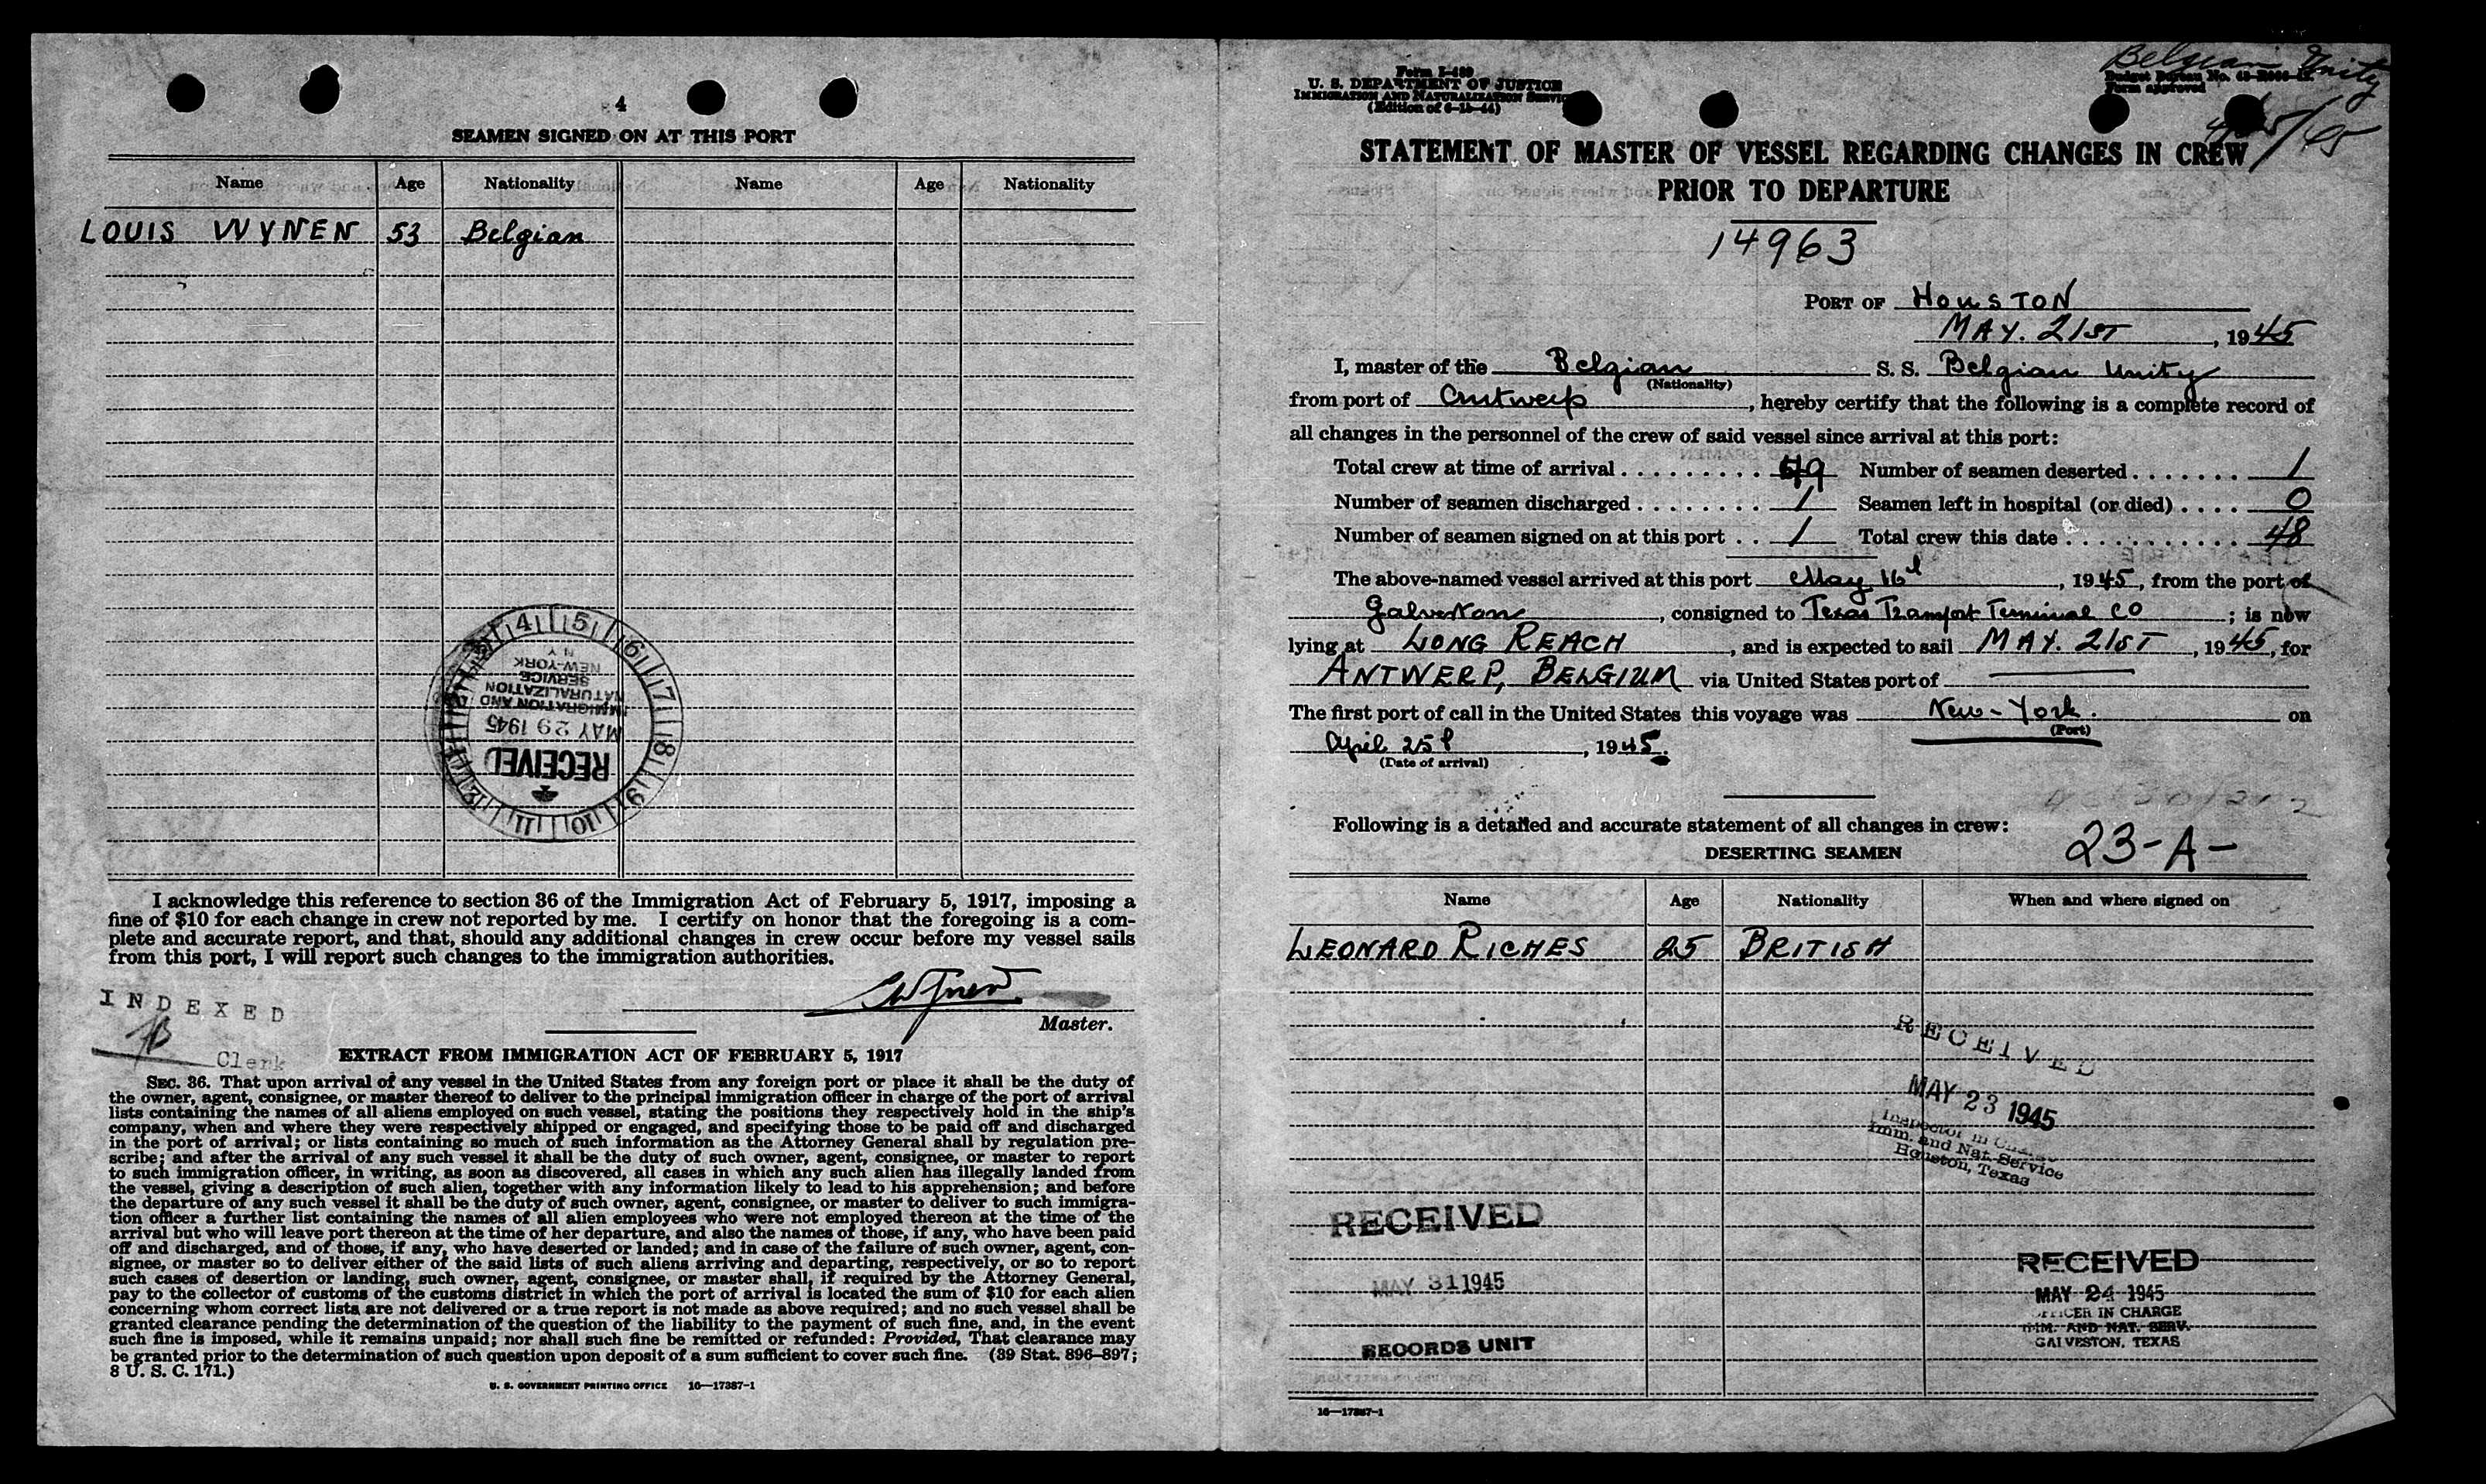 4
SEAMEN SIGNED ON AT THIS PORT
Name Age Nationality Name Age Nationality
LOUIS WYNEN 53 Belgian
4 5 6 7 8 9 10 11
RECEIVED
MAY 29 1945
IMMIGRATION AND
NATURALIZATION
SERVICE
NEW-YORK
N Y
I acknowledge this reference to section 36 of the Immigration Act of February 5, 1917, imposing a
fine of $10 for each change in crew not reported by me. I certify on honor that the foregoing is a com-
plete and accurate report, and that, should any additional changes in crew occur before my vessel sails
from this port, I will report such changes to the immigration authorities.
INDEXED
Clerk
Master.
EXTRACT FROM IMMIGRATION ACT OF FEBRUARY 5, 1917
SEC. 36. That upon arrival of any vessel in the United States from any foreign port or place it shall be the duty of
the owner, agent, consignee, or master thereof to deliver to the principal immigration officer in charge of the port of arrival
lists containing the names of all aliens employed on such vessel, stating the positions they respectively hold in the ship's
company, when and where they were respectively shipped or engaged, and specifying those to be paid off and discharged
in the port of arrival; or lists containing so much of such information as the Attorney General shall by regulation pre-
scribe; and after the arrival of any such vessel it shall be the duty of such owner, agent, consignee, or master to report
to such immigration officer, in writing, as soon as discovered, all cases in which any such alien has illegally landed from
the vessel, giving a description of such alien, together with any information likely to lead to his apprehension; and before
the departure of any such vessel it shall be the duty of such owner, agent, consignee, or master to deliver to such immigra-
tion officer a further list containing the names of all alien employees who were not employed thereon at the time of the
arrival but who will leave port thereon at the time of her departure, and also the names of those, if any, who have been paid
off and discharged, and of those, if any, who have deserted or landed; and in case of the failure of such owner, agent, con-
signee, or master so to deliver either of the said lists of such aliens arriving and departing, respectively, or so to report
such cases of desertion or landing, such owner, agent, consignee, or master shall, if required by the Attorney General,
pay to the collector of customs of the customs district in which the port of arrival is located the sum of $10 for each alien
concerning whom correct lists are not delivered or a true report is not made as above required; and no such vessel shall be
granted clearance pending the determination of the question of the liability to the payment of such fine, and, in the event
such fine is imposed, while it remains unpaid; nor shall such fine be remitted or refunded: Provided, That clearance may
be granted prior to the determination of such question upon deposit of a sum sufficient to cover such fine. (39 Stat. 896–897;
8 U. S. C. 171.)
U. S. GOVERNMENT PRINTING OFFICE 16—17387-1
Form I-489
U. S. DEPARTMENT OF JUSTICE
IMMIGRATION AND NATURALIZATION SERVICE
(Edition of 6-15-44)
Belgian Unity
Budget Bureau No.
Form approved
STATEMENT OF MASTER OF VESSEL REGARDING CHANGES IN CREW
PRIOR TO DEPARTURE
14963
PORT OF HOUSTON
MAY. 21ST, 1945
I, master of the Belgian S. S. Belgian Unity
(Nationality)
from port of Antwerp, hereby certify that the following is a complete record of
all changes in the personnel of the crew of said vessel since arrival at this port:
Total crew at time of arrival . . . . . . . . . 49 Number of seamen deserted . . . . . . . 1
Number of seamen discharged . . . . . . . . 1 Seamen left in hospital (or died) . . . . 0
Number of seamen signed on at this port . . 1 Total crew this date . . . . . . . . . . . 48
The above-named vessel arrived at this port May 16, 1945, from the port of
Galveston, consigned to Texas Transport Terminal CO; is now
lying at LONG REACH, and is expected to sail MAY. 21ST, 1945, for
ANTWERP, BELGIUM via United States port of ——
The first port of call in the United States this voyage was New-York. on
(Port)
April 25, 1945.
(Date of arrival)
Following is a detailed and accurate statement of all changes in crew:
23-A-
DESERTING SEAMEN
Name Age Nationality When and where signed on
LEONARD RICHES 25 BRITISH
RECEIVED
MAY 23 1945
Inspector in Charge
Imm. and Nat. Service
Houston, Texas
RECEIVED
MAY 31 1945
RECORDS UNIT
RECEIVED
MAY 24 1945
OFFICER IN CHARGE
IMM. AND NAT. SERV.
GALVESTON, TEXAS
16—17387-1